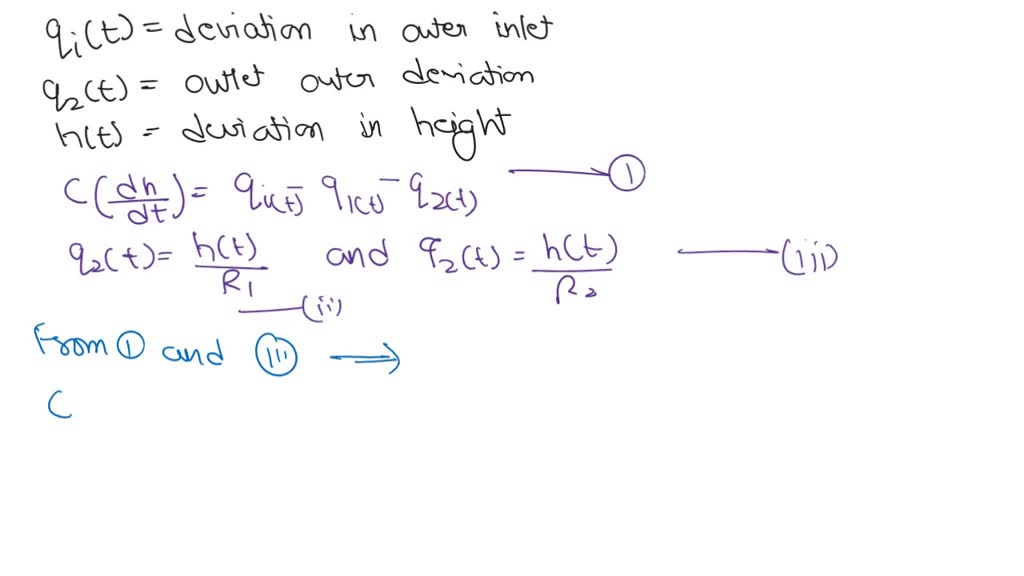 qᵢ(t) = deviation in outer inlet
q₂(t) = outlet outer deviation
h(t) = deviation in height
C(dh/dt) = qᵢ(t) - q₁(t) - q₂(t) ——→ ①
q₂(t) = h(t)/R₁ and q₂(t) = h(t)/R₂ ——— (iii)
——— (ii)
From ① and (iii) →
C